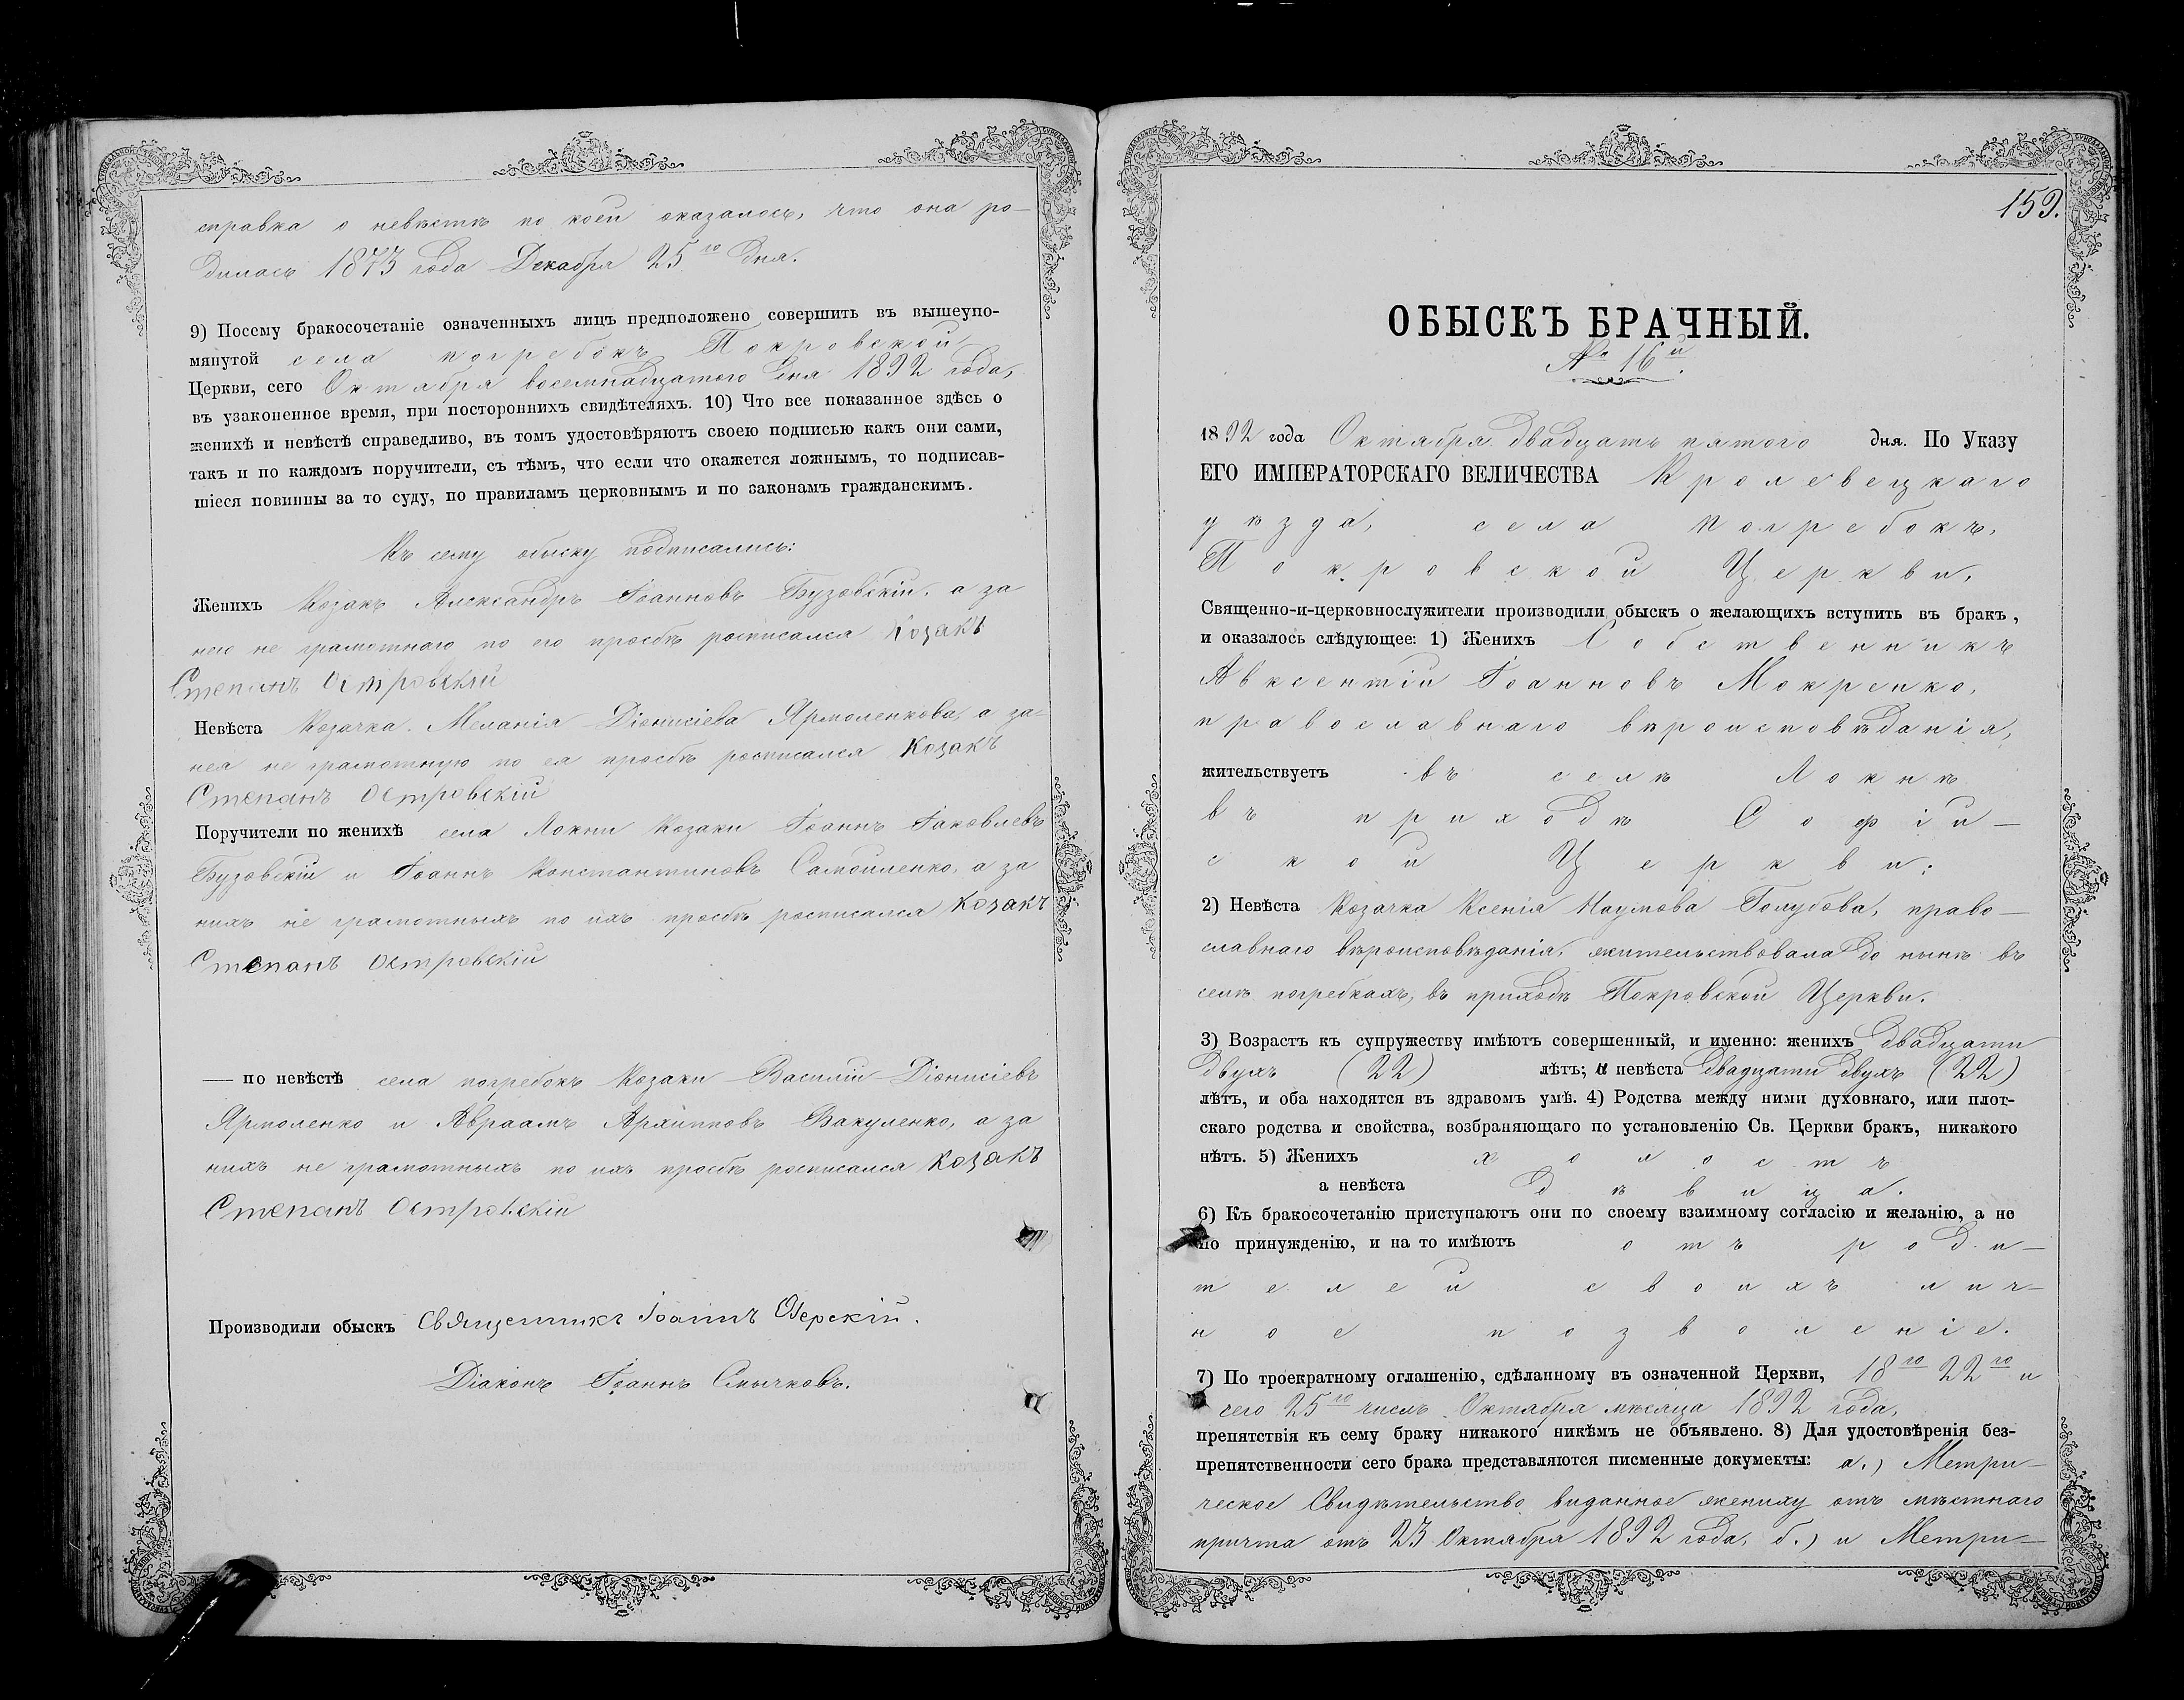 справка о невѣстѣ по коей оказалось, что она ро-
дилась 1873 года Декабря 25го дня.
9) Посему бракосочетаніе означенныхъ лицъ предположено совершить въ вышеупо-
мянутой села погребокъ Покровской
Церкви, сего Октября восемнадцатого дня 1892 года,
въ узаконенное время, при постороннихъ свидѣтеляхъ. 10) Что все показанное здѣсь о
женихѣ и невѣстѣ справедливо, въ томъ удостовѣряютъ своею подписью какъ они сами,
такъ и по каждомъ поручители, съ тѣмъ, что если что окажется ложнымъ, то подписав-
шіеся повинны за то суду, по правиламъ церковнымъ и по законамъ гражданскимъ.
Къ сему обыску подписались:
Женихъ Козакъ Александръ Іоанновъ Бузовскій, а за
него не грамотнаго по его просьбѣ росписался Козакъ
Степанъ Островскій
Невѣста Козачка Меланія Діонисіева Ярмоленкова, а за-
нея не грамотную по ея просьбѣ росписался Козакъ
Степанъ Островскій
Поручители по женихѣ села Локни Козаки Іоаннъ Іаковлевъ
Бузовскій и Іоаннъ Константиновъ Самойленко, а за
нихъ не грамотныхъ по ихъ просьбѣ росписался Козакъ
Степанъ Островскій
— по невѣстѣ села погребокъ Козаки Василій Діонисіевъ
Ярмоленко и Авраамъ Архипповъ Вакуленко, а за
нихъ не грамотныхъ по ихъ просьбѣ росписался Козакъ
Степанъ Островскій
Производили обыскъ Священникъ Іоаннъ Озерскій.
Діаконъ Іоаннъ Смычковъ.
159.
ОБЫСКЪ БРАЧНЫЙ.
№ 16й.
1892 года Октября двадцать пятого дня. По Указу
ЕГО ИМПЕРАТОРСКАГО ВЕЛИЧЕСТВА Кролевецкаго
уѣзда, села Погребокъ,
Покровской Церкви,
Священно-и-церковнослужители производили обыскъ о желающихъ вступить въ бракъ,
и оказалось слѣдующее: 1) Женихъ Собственникъ
Авксентій Іоанновъ Мокренко,
православнаго вѣроисповѣданія,
жительствуетъ въ селѣ Локнѣ
въ приходѣ Софій-
ской Церкви;
2) Невѣста Козачка Ксенія Наумова Голубова, право-
славнаго вѣроисповѣданія, жительствовала до нынѣ въ
селѣ погребкахъ, въ приходѣ Покровской Церкви.
3) Возрастъ къ супружеству имѣютъ совершенный, и именно: женихъ двадцати
двухъ (22) лѣтъ; и невѣста двадцати двухъ (22)
лѣтъ, и оба находятся въ здравомъ умѣ. 4) Родства между ними духовнаго, или плот-
скаго родства и свойства, возбраняющаго по установленію Св. Церкви бракъ, никакого
нѣтъ. 5) Женихъ холостъ
а невѣста дѣвица.
6) Къ бракосочетанію приступаютъ они по своему взаимному согласію и желанію, а не
по принужденію, и на то имѣютъ отъ роди-
телей своихъ лич-
ное позволеніе.
7) По троекратному оглашенію, сдѣланному въ означенной Церкви, 18го 22го и
сего 25го числъ Октября мѣсяца 1892 года,
препятствія къ сему браку никакого никѣмъ не объявлено. 8) Для удостовѣренія без-
препятственности сего брака представляются писменные документы: а.) Метри-
ческое Свидѣтельство виданное жениху отъ мѣстнаго
причта отъ 23 Октября 1892 года, б.) и Метри-